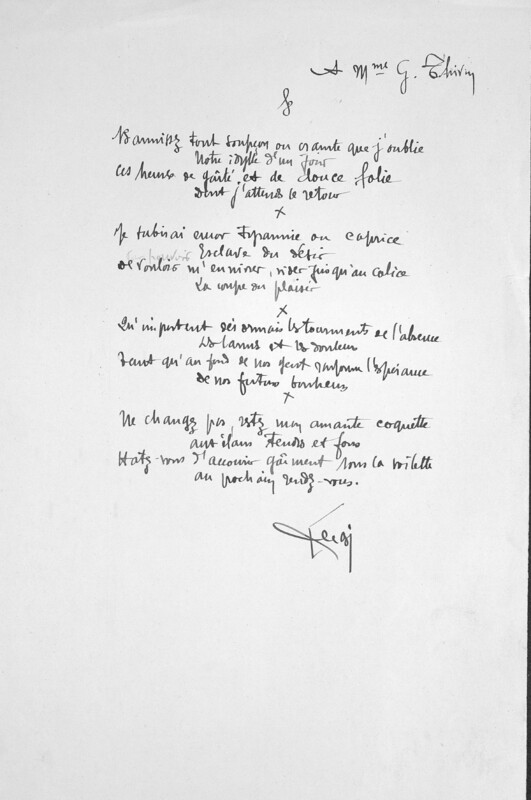 A Mme G. Thivry
Bannissez tout soupçon ou crainte que j'oublie
Notre idylle d'un jour
Ces heures de gaîté et de douce folie
Dont j'attends le retour
x
Je subirai encor tyrannie ou caprice
Esclave du désir
De vouloir m'enivrer, vider jusqu'au calice
La coupe du plaisir
x
Qu'importent désormais les tourments de l'absence
Les larmes et les douleurs
Tant qu'au fond de nos l'espérance
De nos futurs bonheurs
x
Ne changez pas, restez mon amante coquette
aux élans tendres et fous
Hatez-vous d'accourir gaîment sous la voilette
au prochain rendez-vous.